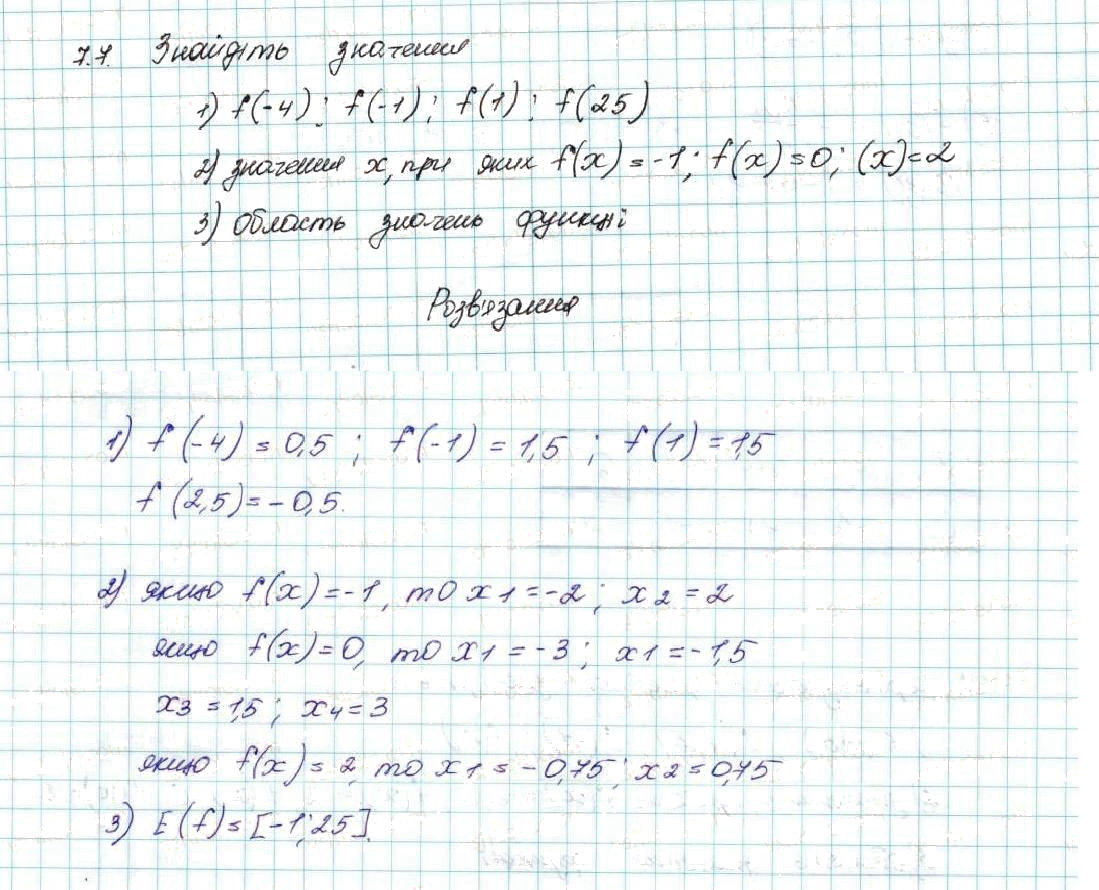 7.7. Знайдіть значення
1) f(-4); f(-1); f(1); f(25)
2) значення x, при яких f(x)=-1; f(x)=0; (x)=2
3) Область значень функції
Розв'язання
1) f(-4)=0,5; f(-1)=1,5; f(1)=1,5
f(2,5)=-0,5.
2) якщо f(x)=-1, то x1=-2; x2=2
якщо f(x)=0, то x1=-3; x1=-1,5
x3=1,5; x4=3
якщо f(x)=2, то x1=-0,75; x2=0,75
3) E(f)=[-1;25].